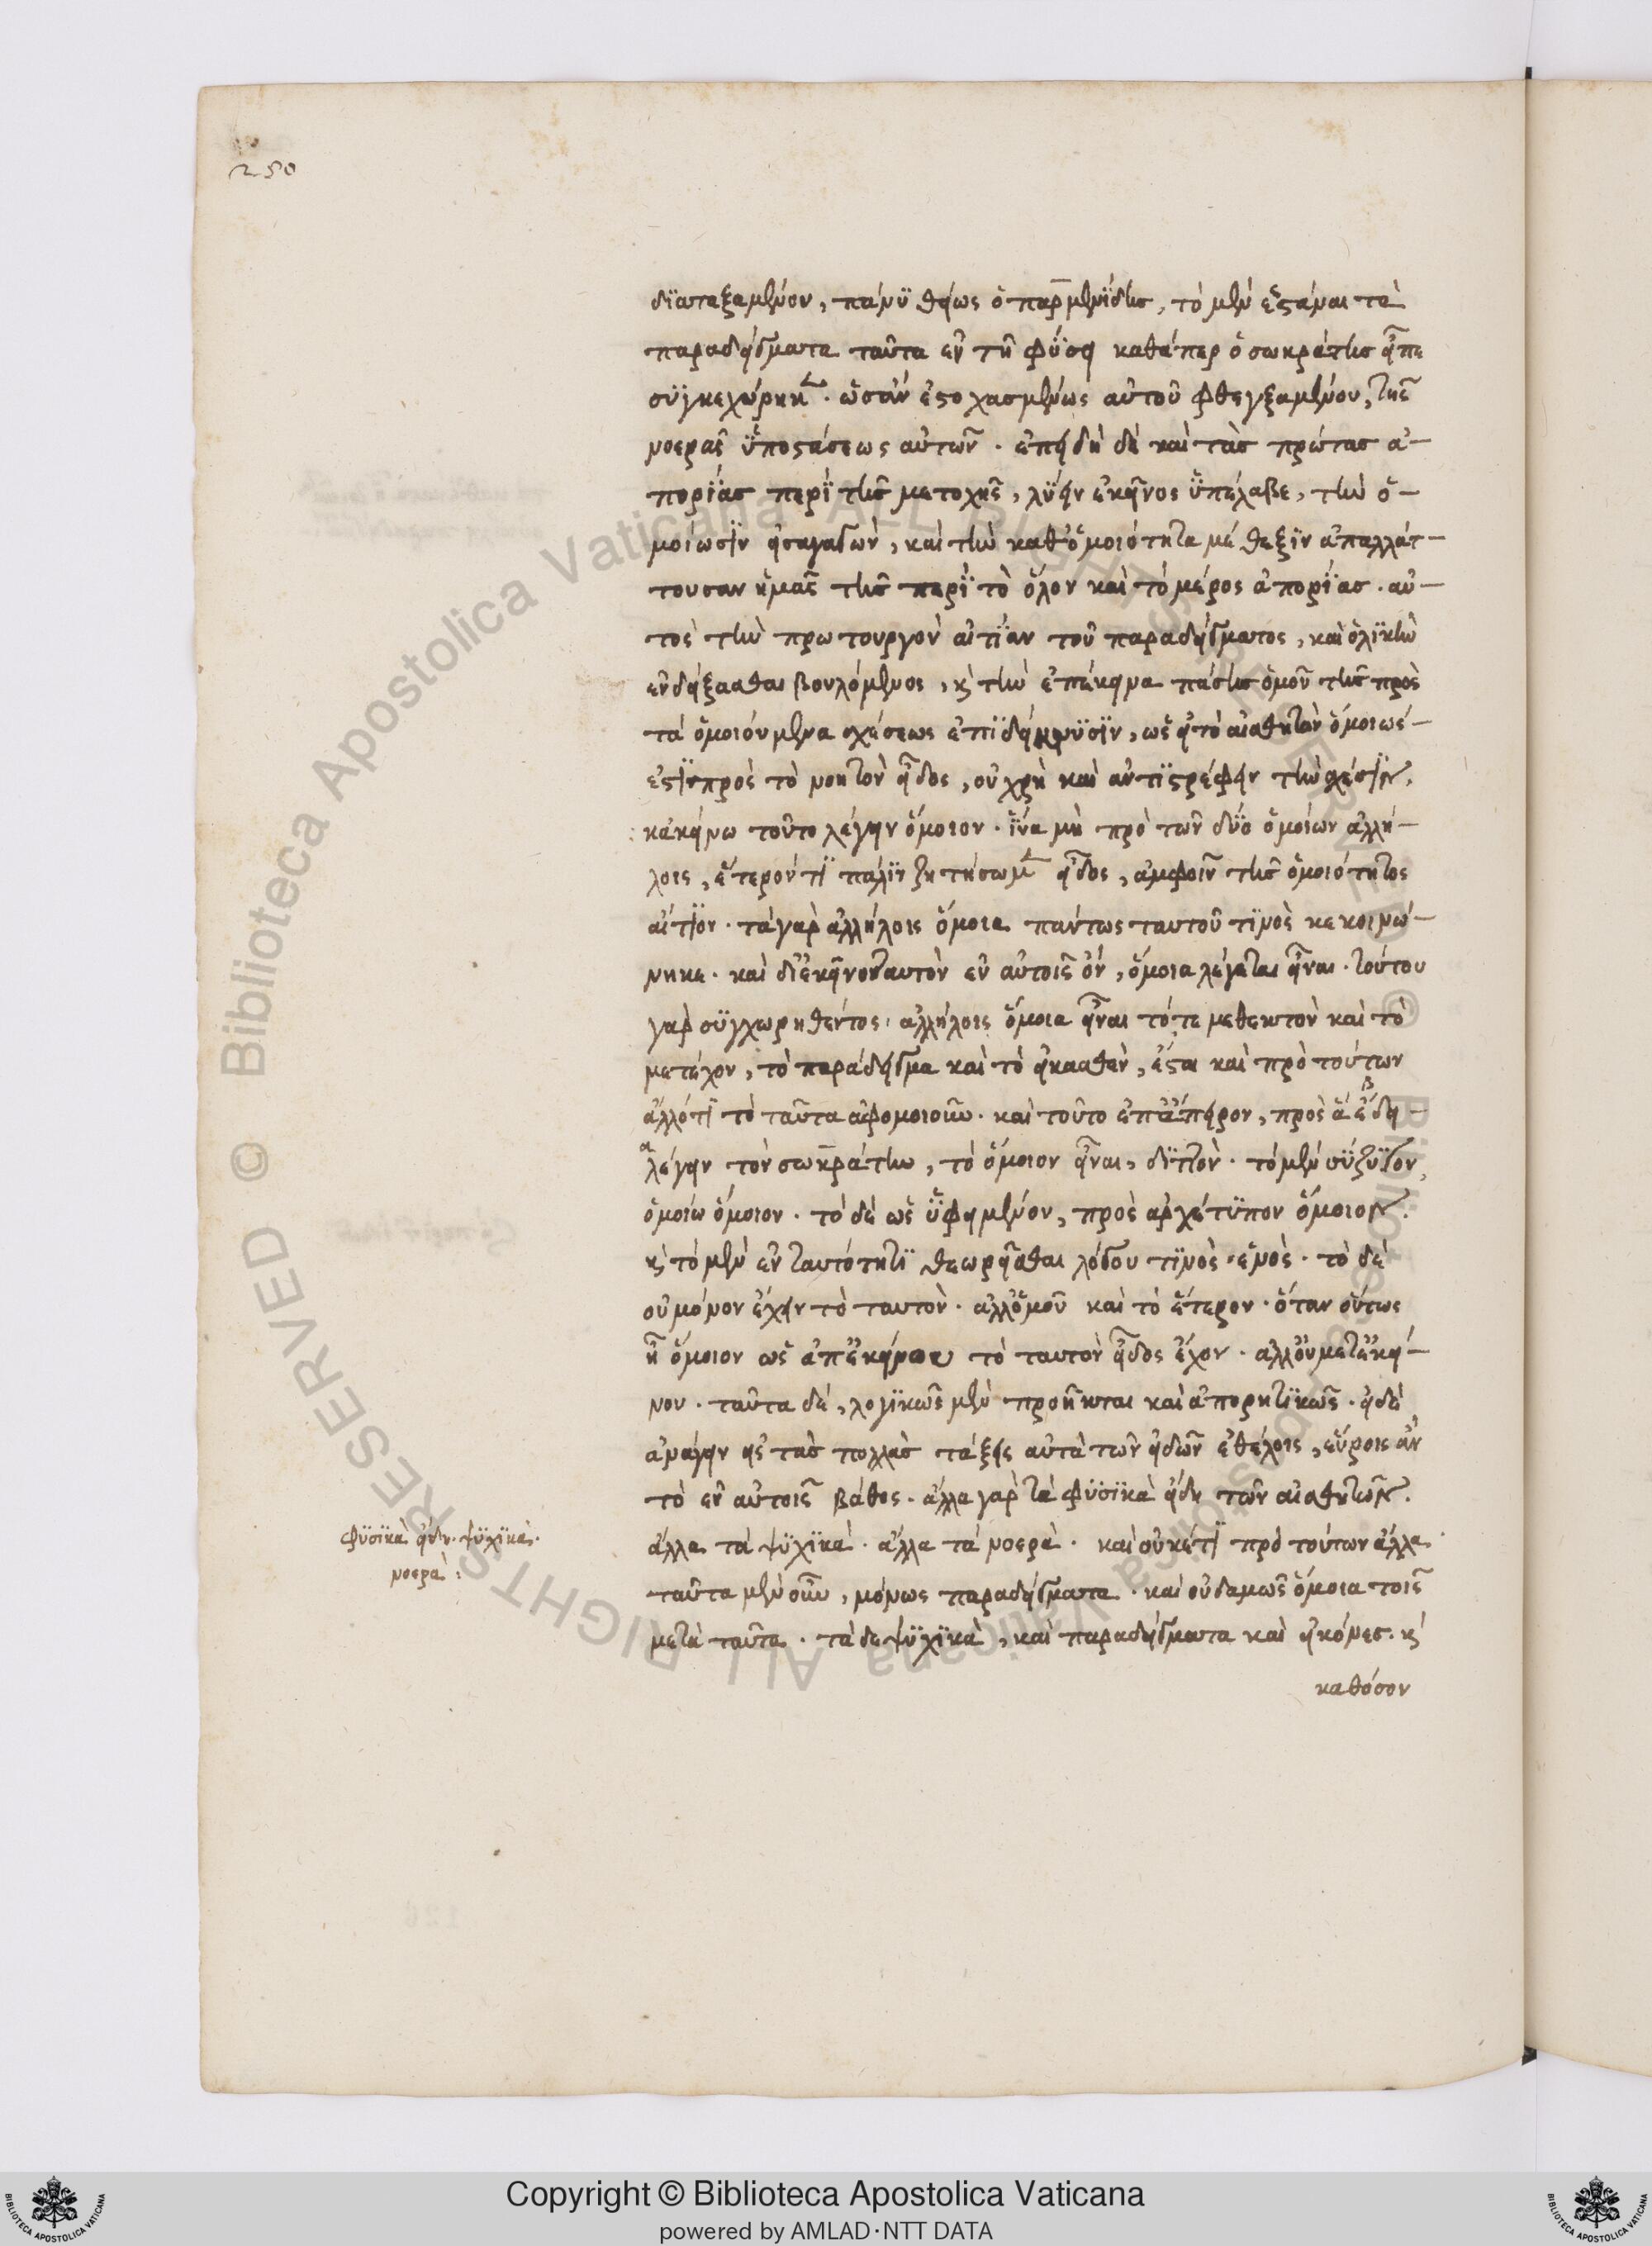 250
διαταξαμένου, πάνυ θείως ὁ παρμενίδης, τὸ μὲν ἑστάναι τὰ
παραδείγματα ταῦτα ἐν τῇ φύσει καθάπερ ὁ σωκράτης εἶπε
συγκεχώρηκε. ὡσὰν ἐστοχασμένως αὐτοῦ φθεγξαμένου, τῆς
νοερᾶς ὑποστάσεως αὐτῶν. ἐπειδὴ δὲ καὶ τὰς πρώτας ἀ-
πορίας περὶ τῆς μετοχῆς, λύειν ἐκεῖνος ὑπέλαβε, τὴν ὁ-
μοίωσιν εἰσαγαγὼν, καὶ τὴν καθ' ὁμοιότητα μέθεξιν ἀπαλλάτ-
τουσαν ἡμᾶς τῆς περὶ τὸ ὅλον καὶ τὸ μέρος ἀπορίας. αὐ-
τὸς τὴν πρωτουργὸν αἰτίαν τοῦ παραδείγματος, καὶ ὁλικὴν
ἐνδείξασθαι βουλόμενος, κ τὴν ἐπέκεινα πάσης ὁμοῦ τῆς πρὸς
τὰ ὁμοιούμενα σχέσεως ἐπιδείκνυσιν, ὡς εἰ τὸ αἰσθητὸν ὁμοίως
ἐστὶ πρὸς τὸ νοητὸν εἶδος, οὐ χρὴ καὶ ἀντιστρέφειν τὴν σχέσιν,
κἀκείνω τοῦτο λέγειν ὅμοιον. ἵνα μὴ πρὸ τῶν δύο ὁμοίων ἀλλή-
λοις, ἕτερόν τι πάλιν ζητήσωμεν εἶδος, ἀμφοῖν τῆς ὁμοιότητος
αἴτιον. τὰ γὰρ ἀλλήλοις ὅμοια πάντως ταυτοῦ τινὸς κεκοινώ-
νηκε. καὶ δι' ἐκεῖνο ταυτὸν ἐν αὐτοῖς ὂν, ὅμοια λέγεται εἶναι. τούτου
γὰρ συγχωρηθέντος, ἀλλήλοις ὅμοια εἶναι τό τε μεθεκτὸν καὶ τὸ
μετέχον, τὸ παράδειγμα καὶ τὸ εἰκασθὲν, ἔσται καὶ πρὸ τούτων
ἄλλό τι τὸ ταῦτα ἀφομοιοῦν. καὶ τοῦτο ἐπ' ἄπειρον, πρὸς ἃ ἔδει
λέγειν τὸν σωκράτην, τὸ ὅμοιον εἶναι, διττὸν. τὸ μὲν σύζυγον,
ὁμοίω ὅμοιον. τὸ δὲ ὡς ὑφειμένον, πρὸς ἀρχέτυπον ὅμοιον.
κ τὸ μὲν ἐν ταυτότητι θεωρεῖσθαι λόγου τινὸς ἑνὸς. τὸ δὲ
οὐ μόνον ἔχειν τὸ ταυτὸν. ἀλλ' ὁμοῦ καὶ τὸ ἕτερον. ὅταν οὕτως
ᾖ ὅμοιον ὡς ἀπ' ἐκείνου τὸ ταυτὸν εἶδος ἔχον. ἀλλ' οὐ μετ' ἐκεί-
νου. ταῦτα δὲ, λογικῶς μὲν προῆκται καὶ ἀπορητικῶς. εἰ δὲ
ἀνάγειν εἰς τὰς πολλὰς τάξεις αὐτὰ τῶν εἰδῶν ἐθέλοις, εὕροις ἂν
τὸ ἐν αὐτοῖς βάθος. ἄλλα γὰρ τὰ φυσικὰ εἴδη τῶν αἰσθητῶν.
ἄλλα τὰ ψυχικὰ. ἄλλα τὰ νοερὰ. καὶ οὐκέτι πρὸ τούτων ἄλλα.
ταῦτα μὲν οὖν, μόνως παραδείγματα. καὶ οὐδαμῶς ὅμοια τοῖς
μετὰ ταῦτα. τὰ δὲ ψυχικὰ, καὶ παραδείγματα καὶ εἰκόνες. κ
καθόσον
φυσικὰ εἴδη. ψυχικὰ.
νοερὰ:
Copyright © Biblioteca Apostolica Vaticana
powered by AMLAD·NTT DATA
Biblioteca Apostolica Vaticana ALL RIGHTS RESERVED ©